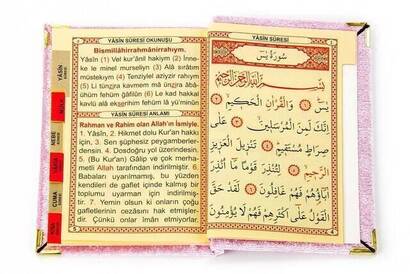 YÂSİN SÛRESİ OKUNUŞU
Bismillâhirrahmânirrahıym.
Yâsîn (1) Vel kur'ânil hakiym (2) İnne-
ke le minel murseliyn (3) Alâ sırâtim
müstekıym (4) Tenziylel aziyzir rahıym
(5) Li tünzira kavmem mâ ünzira âbâ-
ühüm fehüm ğâfilûn (6) Le kad hakkal
kavlü alâ ekserihim fehüm lâ yü'minûn
YÂSÎN SÛRESİ ANLAMI
Rahman ve Rahim olan Allah'ın İsmiyle.
1. Yâsîn, 2. Hikmet dolu Kur'an hakkı
için, 3. Sen şüphesiz peygamberler-
densin. 4. Dosdoğru yol üzerindesin.
5. (Bu Kur'an) Gâlip ve çok merha-
metli Allah tarafından indirilmiştir. 6.
Babaları uyarılmamış, bu yüzden
kendileri de gaflet içinde kalmış bir
toplumu uyarman için indirilmiş-
tir. 7. Yemin olsun ki onların çoğu
gafletlerinin cezasını hak etmişler-
dir. Çünkü onlar îman etmiyorlar.
YÂSİN
NEBE
CUMA
YÂSİN SÛRESİ
سُورَةُ يٰسٓ
بِسْمِ اللّٰهِ الرَّحْمٰنِ الرَّحِيمِ
يٰسٓ ﴿١﴾ وَالْقُرْاٰنِ الْحَكِيمِ ﴿٢﴾
اِنَّكَ لَمِنَ الْمُرْسَلِينَ ﴿٣﴾ عَلٰى
صِرَاطٍ مُسْتَقِيمٍ ﴿٤﴾ تَنْزِيلَ الْعَزِيزِ
الرَّحِيمِ ﴿٥﴾ لِتُنْذِرَ قَوْمًا مَٓا اُنْذِرَ
اٰبَٓاؤُهُمْ فَهُمْ غَافِلُونَ ﴿٦﴾ لَقَدْ حَقَّ
الْقَوْلُ عَلٰٓى اَكْثَرِهِمْ فَهُمْ لَا يُؤْمِنُونَ